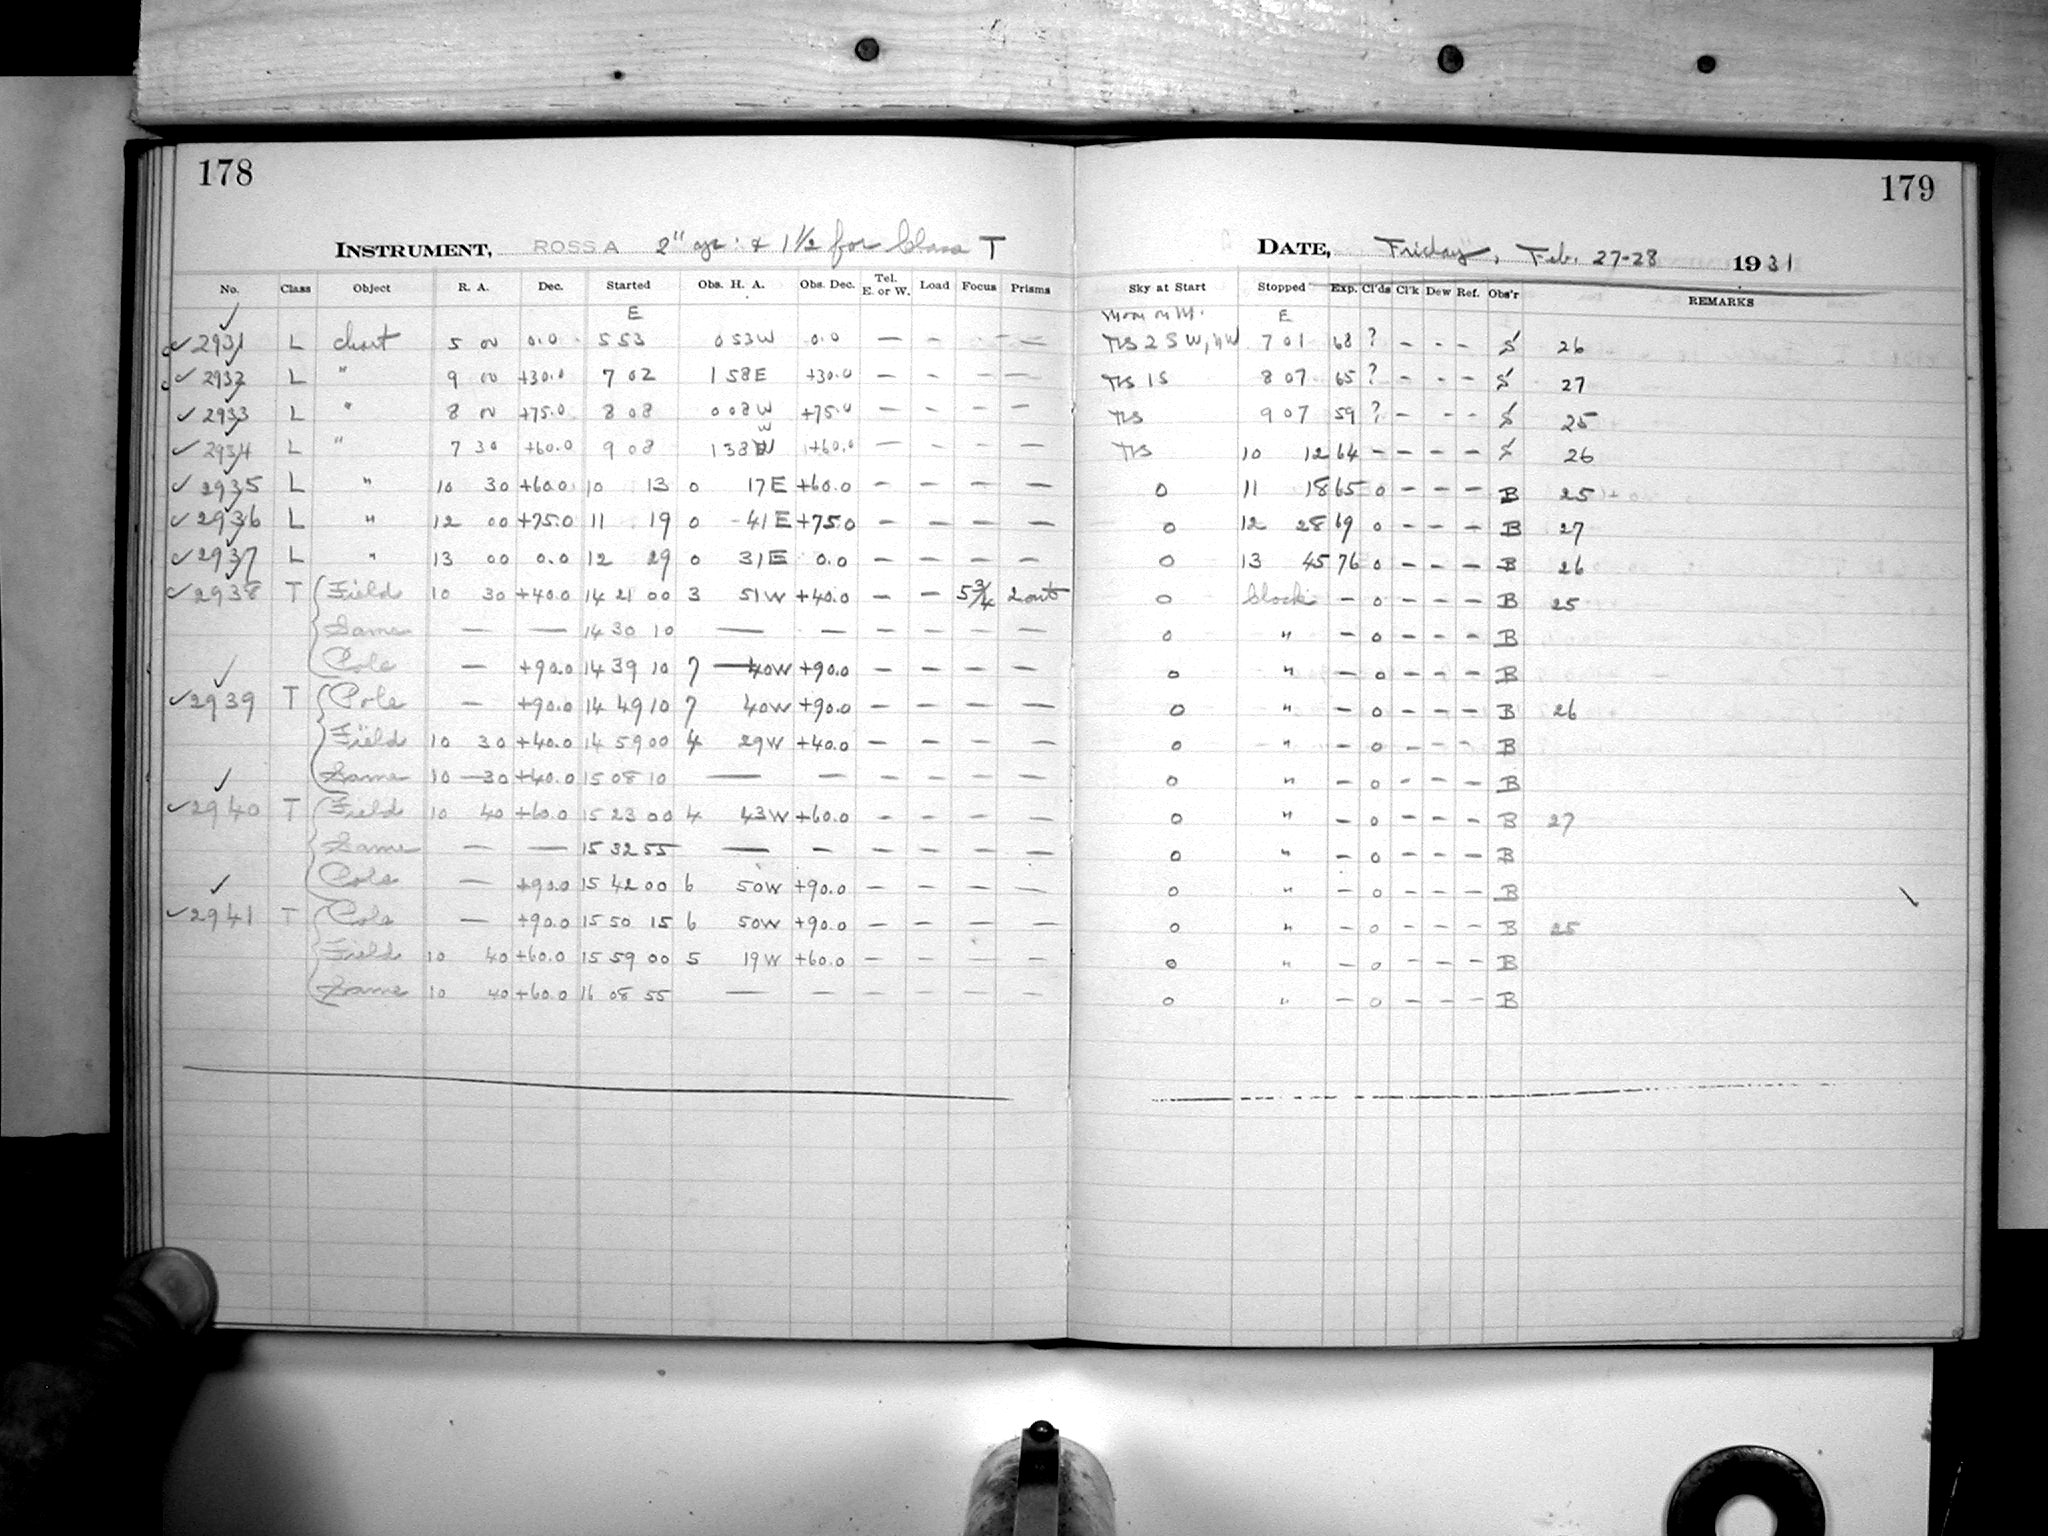 178
INSTRUMENT, ROSS A 2" ap. & 1½ for Class T
No. Class Object R. A. Dec. Started Obs. H. A. Obs. Dec. Tel. E. or W. Load Focus Prisms
E
✓ 2931 L chart 5 00 0.0 5 53 0 53 W 0.0 — - - - —
✓ 2932 L " 9 00 +30.0 7 02 1 58 E +30.0 — - - —
✓ 2933 L " 8 00 +75.0 8 08 0 08 W +75.0 — - - —
✓ 2934 L " 7 30 +60.0 9 08 1 38 W +60.0 — - - —
✓ 2935 L " 10 30 +60.0 10 13 0 17 E +60.0 — — — —
✓ 2936 L " 12 00 +75.0 11 19 0 41 E +75.0 — — — —
✓ 2937 L " 13 00 0.0 12 29 0 31 E 0.0 — — — —
✓ 2938 T Field 10 30 +40.0 14 21 00 3 51 W +40.0 — — 5¾ 2 out
Same — — 14 30 10 — — — — — —
Pole — +90.0 14 39 10 7 40 W +90.0 — — — —
✓ 2939 T Pole — +90.0 14 49 10 7 40 W +90.0 — — — —
Field 10 30 +40.0 14 59 00 4 29 W +40.0 — — — —
Same 10 30 +40.0 15 08 10 — — — — — —
✓ 2940 T Field 10 40 +60.0 15 23 00 4 43 W +60.0 — — — —
Same — — 15 32 55 — — — — — —
Pole — +90.0 15 42 00 6 50 W +90.0 — — — —
✓ 2941 T Pole — +90.0 15 50 15 6 50 W +90.0 — — — —
Field 10 40 +60.0 15 59 00 5 19 W +60.0 — — — —
Same 10 40 +60.0 16 08 55 — — — — — —
179
DATE, Friday, Feb. 27-28 1931
Sky at Start Stopped Exp. Cl'ds Cl'k Dew Ref. Obs'r REMARKS
E
2 S W, NW 7 01 68 ? - - - S 26
1 S 8 07 65 ? - - - S 27
9 07 59 ? - - - S 25
10 12 64 - - - - S 26
0 11 18 65 0 - - - B 25
0 12 28 69 0 - - - B 27
0 13 45 76 0 - - - B 26
0 Clock - 0 - - - B 25
0 " - 0 - - - B
0 " - 0 - - - B
0 " - 0 - - - B 26
0 " - 0 - - - B
0 " - 0 - - - B
0 " - 0 - - - B 27
0 " - 0 - - - B
0 " - 0 - - - B
0 " - 0 - - - B 25
0 " - 0 - - - B
0 " - 0 - - - B